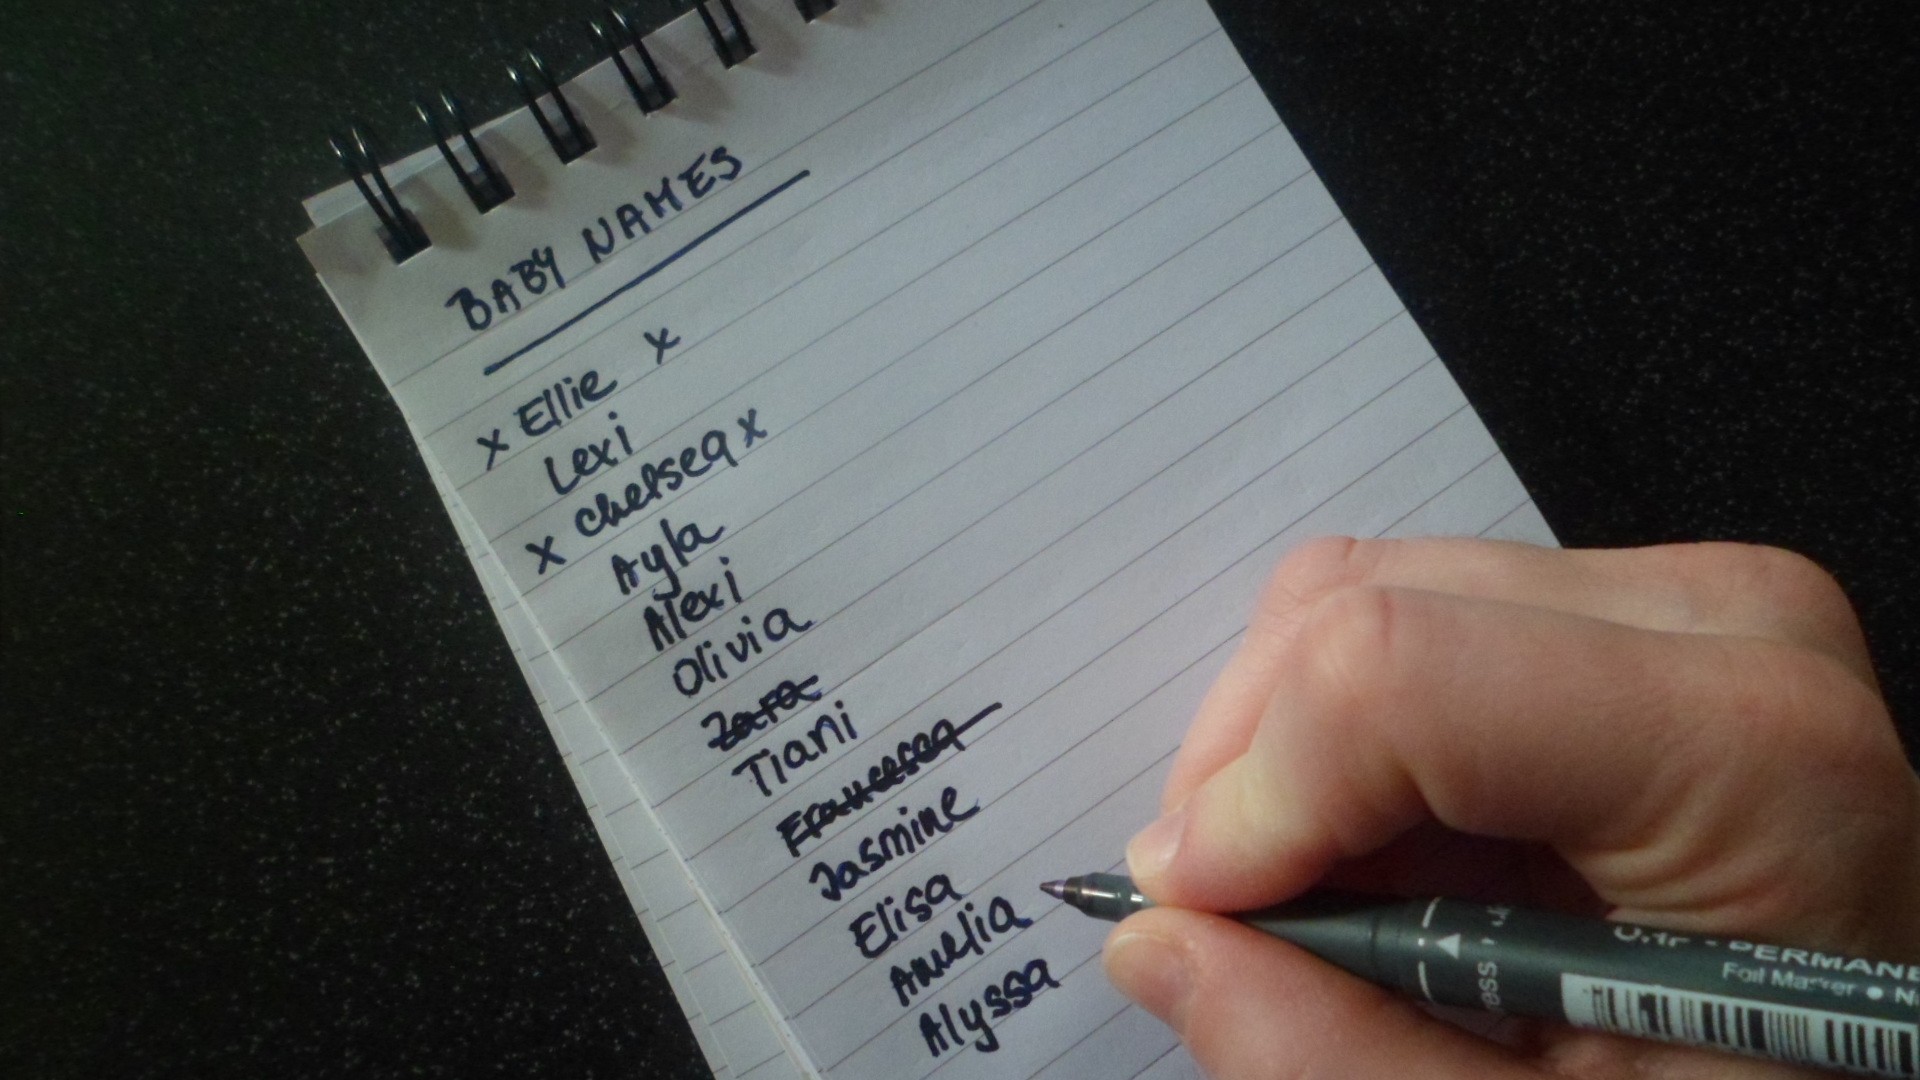 BABY NAMES
x Ellie x
Lexi
x Chelsea x
Ayla
Alexi
Olivia
Zara
Tiani
Francesca
Jasmine
Elisa
Amelia
Alyssa
PERMANE
Foil Marker • Ni